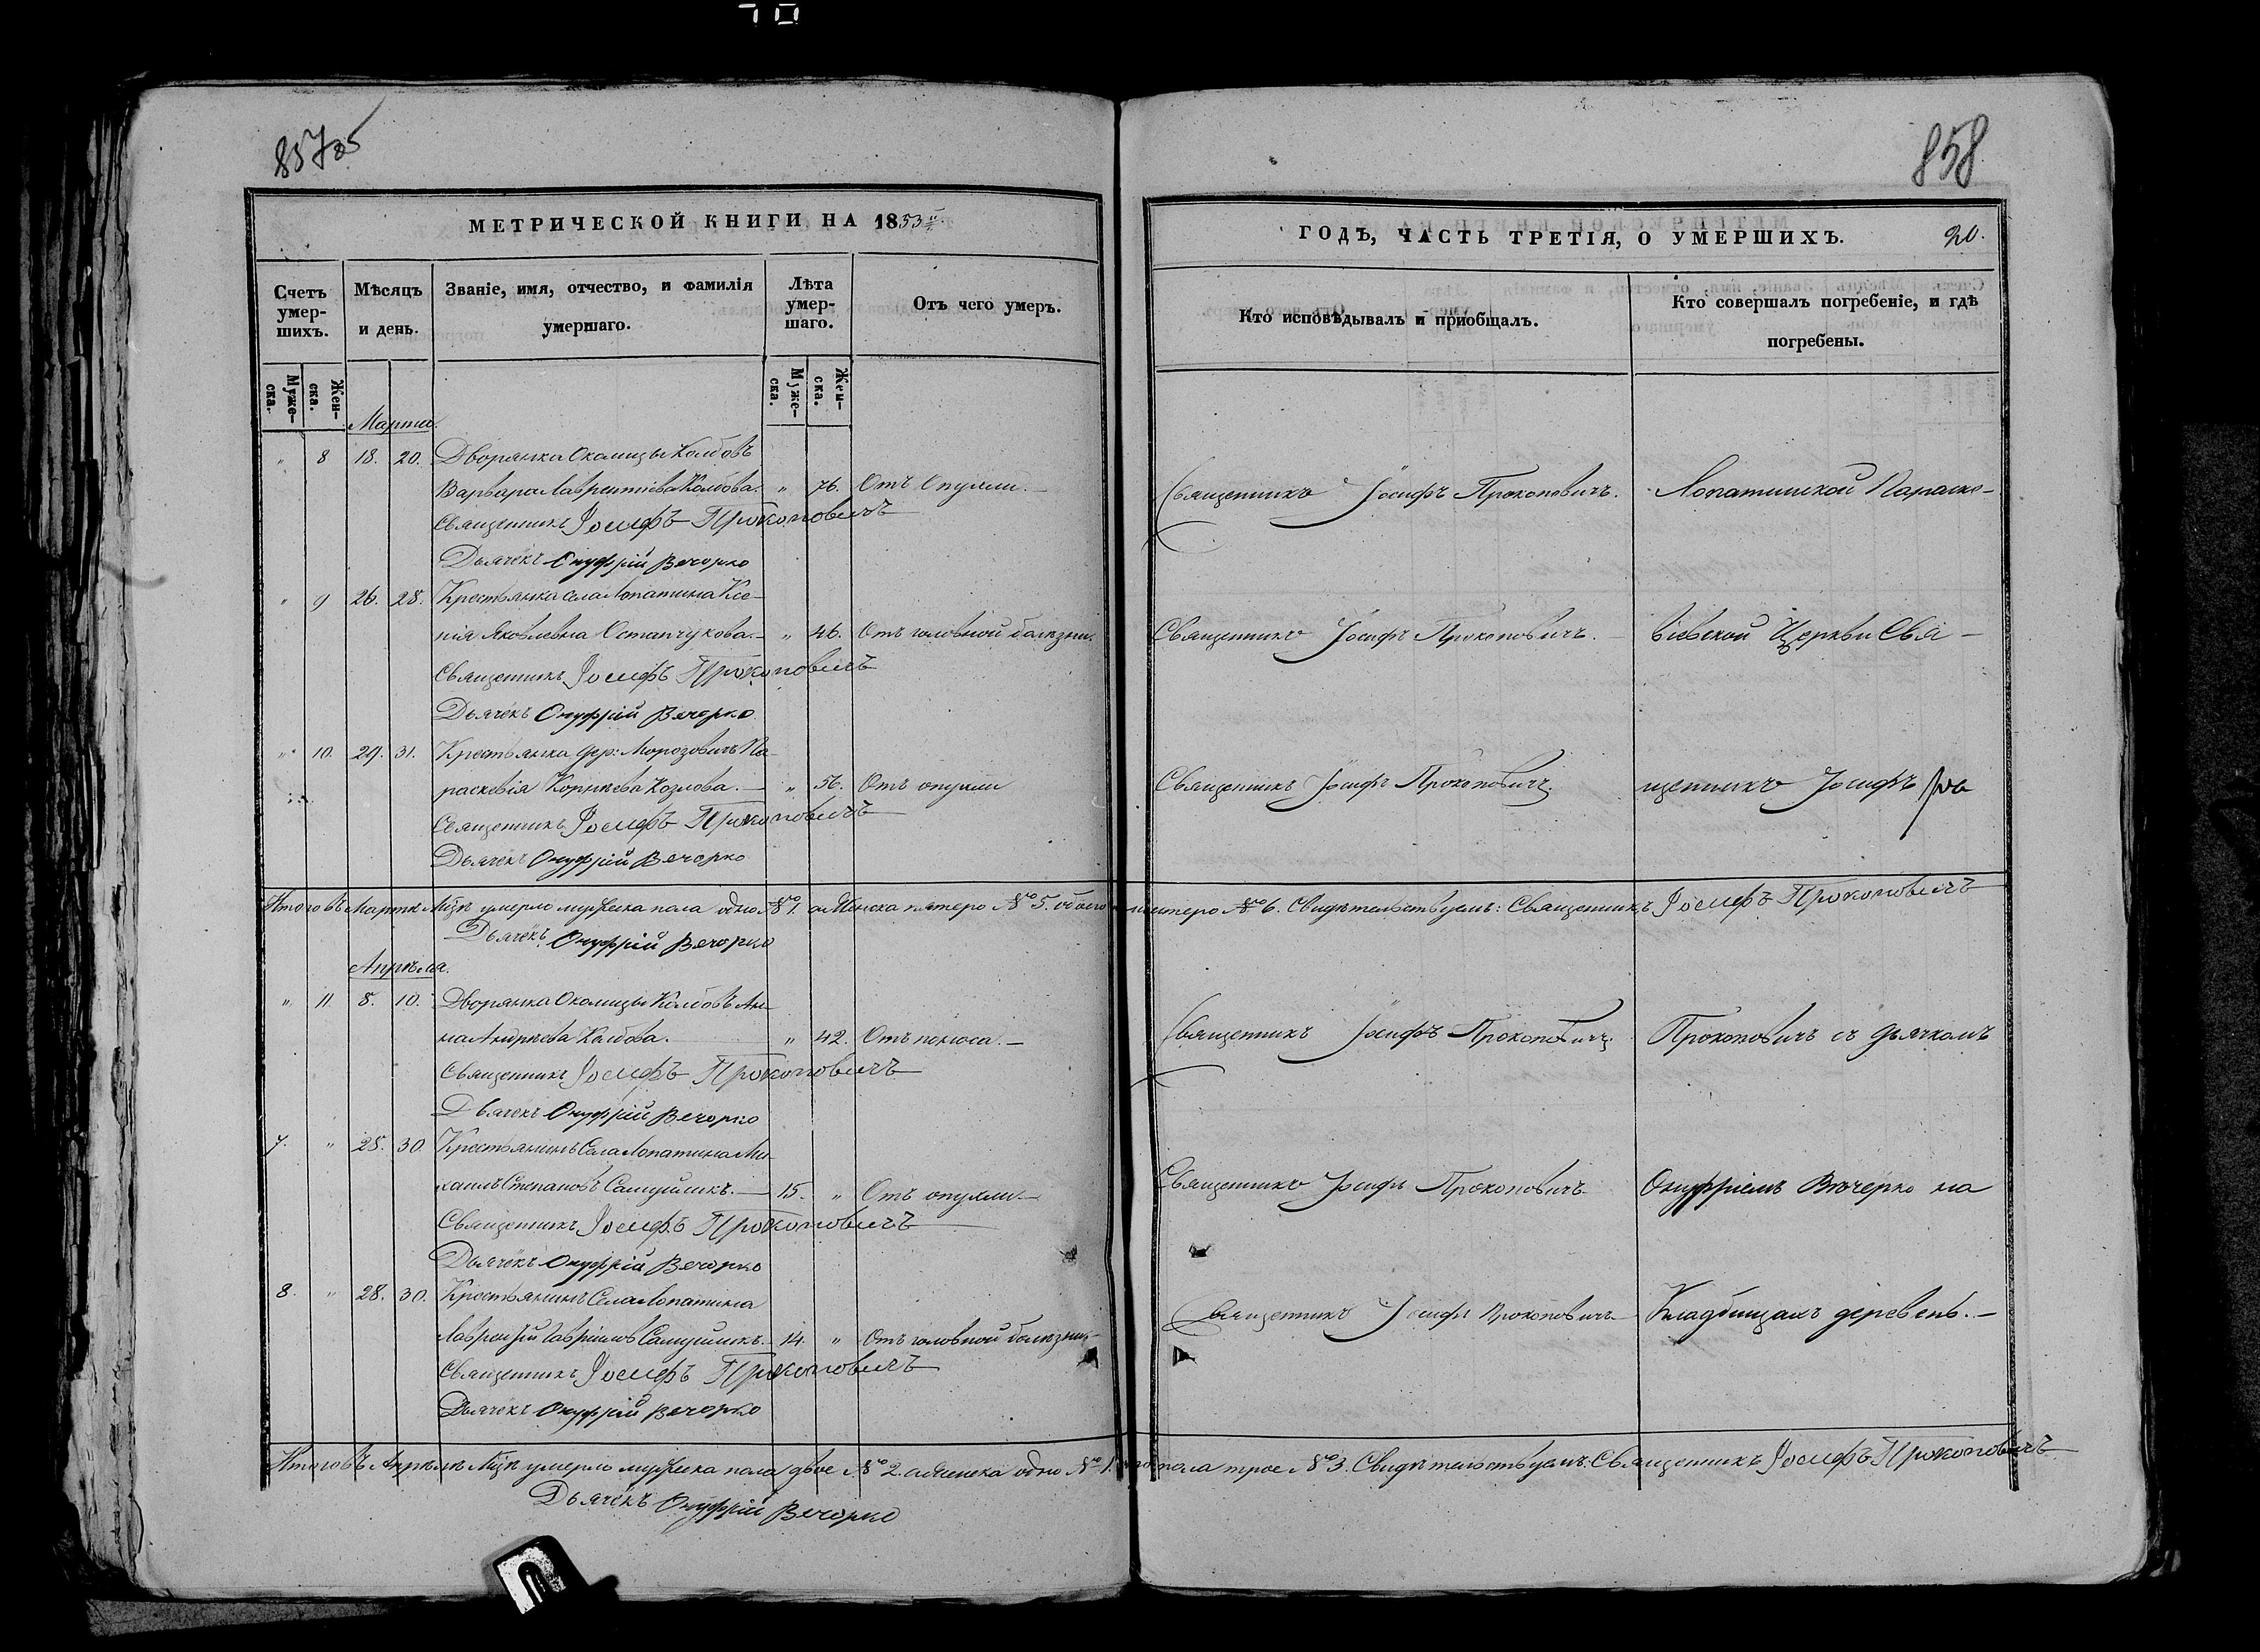 70
857об
858
МЕТРИЧЕСКОЙ КНИГИ НА 1853й
ГОДЪ, ЧАСТЬ ТРЕТІЯ, О УМЕРШИХЪ.
20.
Счетъ умер-шихъ.
Мѣсяцъ и день.
Званіе, имя, отчество, и фамилія умершаго.
Лѣта умер-шаго.
Отъ чего умеръ.
Кто исповѣдывалъ и пріобщалъ.
Кто совершалъ погребеніе, и гдѣ погребены.
Муже-ска.
Жен-ска.
Муже-ска.
Жен-ска.
Марта.
" 8 18. 20. Дворянка Околицы Колбовъ
Варвара Лаврентіева Колбова. " 76. Отъ Опухли.— Священникъ Іосифъ Прокоповичъ. Лопатинской Параске-
Священникъ Іосифъ Прокоповичъ
Дьячекъ Онуфрій Вечорко
" 9 26. 28. Крестьянка села Лопатина Ксе-
нія Яковлевна Остапчукова.— " 46. Отъ головной болѣзни. Священникъ Іосифъ Прокоповичъ.— віевской Церкви Свя-
Священникъ Іосифъ Прокоповичъ
Дьячекъ Онуфрій Вечорко
" 10. 29. 31. Крестьянка дер: Морозовичъ Па-
раскевія Корнѣева Козлова.— " 56. Отъ опухли Священникъ Іосифъ Прокоповичъ. щенникъ Іосифъ
Священникъ Іосифъ Прокоповичъ
Дьячекъ Онуфрій Вечорко
Итого въ Мартѣ Мцѣ умерло мужеска пола одно №1. а Женска пятеро №5. обоего шестеро №6. Свидѣтельствуемъ: Священникъ Іосифъ Прокоповичъ
Дьячекъ Онуфрій Вечорко
Апрѣля.
" 11 8. 10. Дворянка Околицы Колбовъ Ан-
на Андрѣева Колбова. " 42. Отъ поноса.— Священникъ Іосифъ Прокоповичъ. Прокоповичъ съ дьячкомъ
Священникъ Іосифъ Прокоповичъ
Дьячекъ Онуфрій Вечорко
7. " 28. 30. Крестьянинъ Села Лопатина Ми-
хаилъ Степановъ Самуйликъ.— 15. " Отъ опухли.— Священникъ Іосифъ Прокоповичъ Онуфріемъ Вечерко на
Священникъ Іосифъ Прокоповичъ
Дьячекъ Онуфрій Вечорко
8. " 28. 30. Крестьянинъ Села Лопатина
Гавріиловъ Самуйликъ.— 14. " Отъ головной болѣзни.— Священникъ Іосифъ Прокоповичъ Кладбищахъ деревень.—
Священникъ Іосифъ Прокоповичъ
Дьячекъ Онуфрій Вечорко
Итого въ Апрѣлѣ Мцѣ умерло мужеска пола двое №2. а Женска одно №1. пола трое №3. Свидѣтельствуемъ: Священникъ Іосифъ Прокоповичъ
Дьячекъ Онуфрій Вечорко